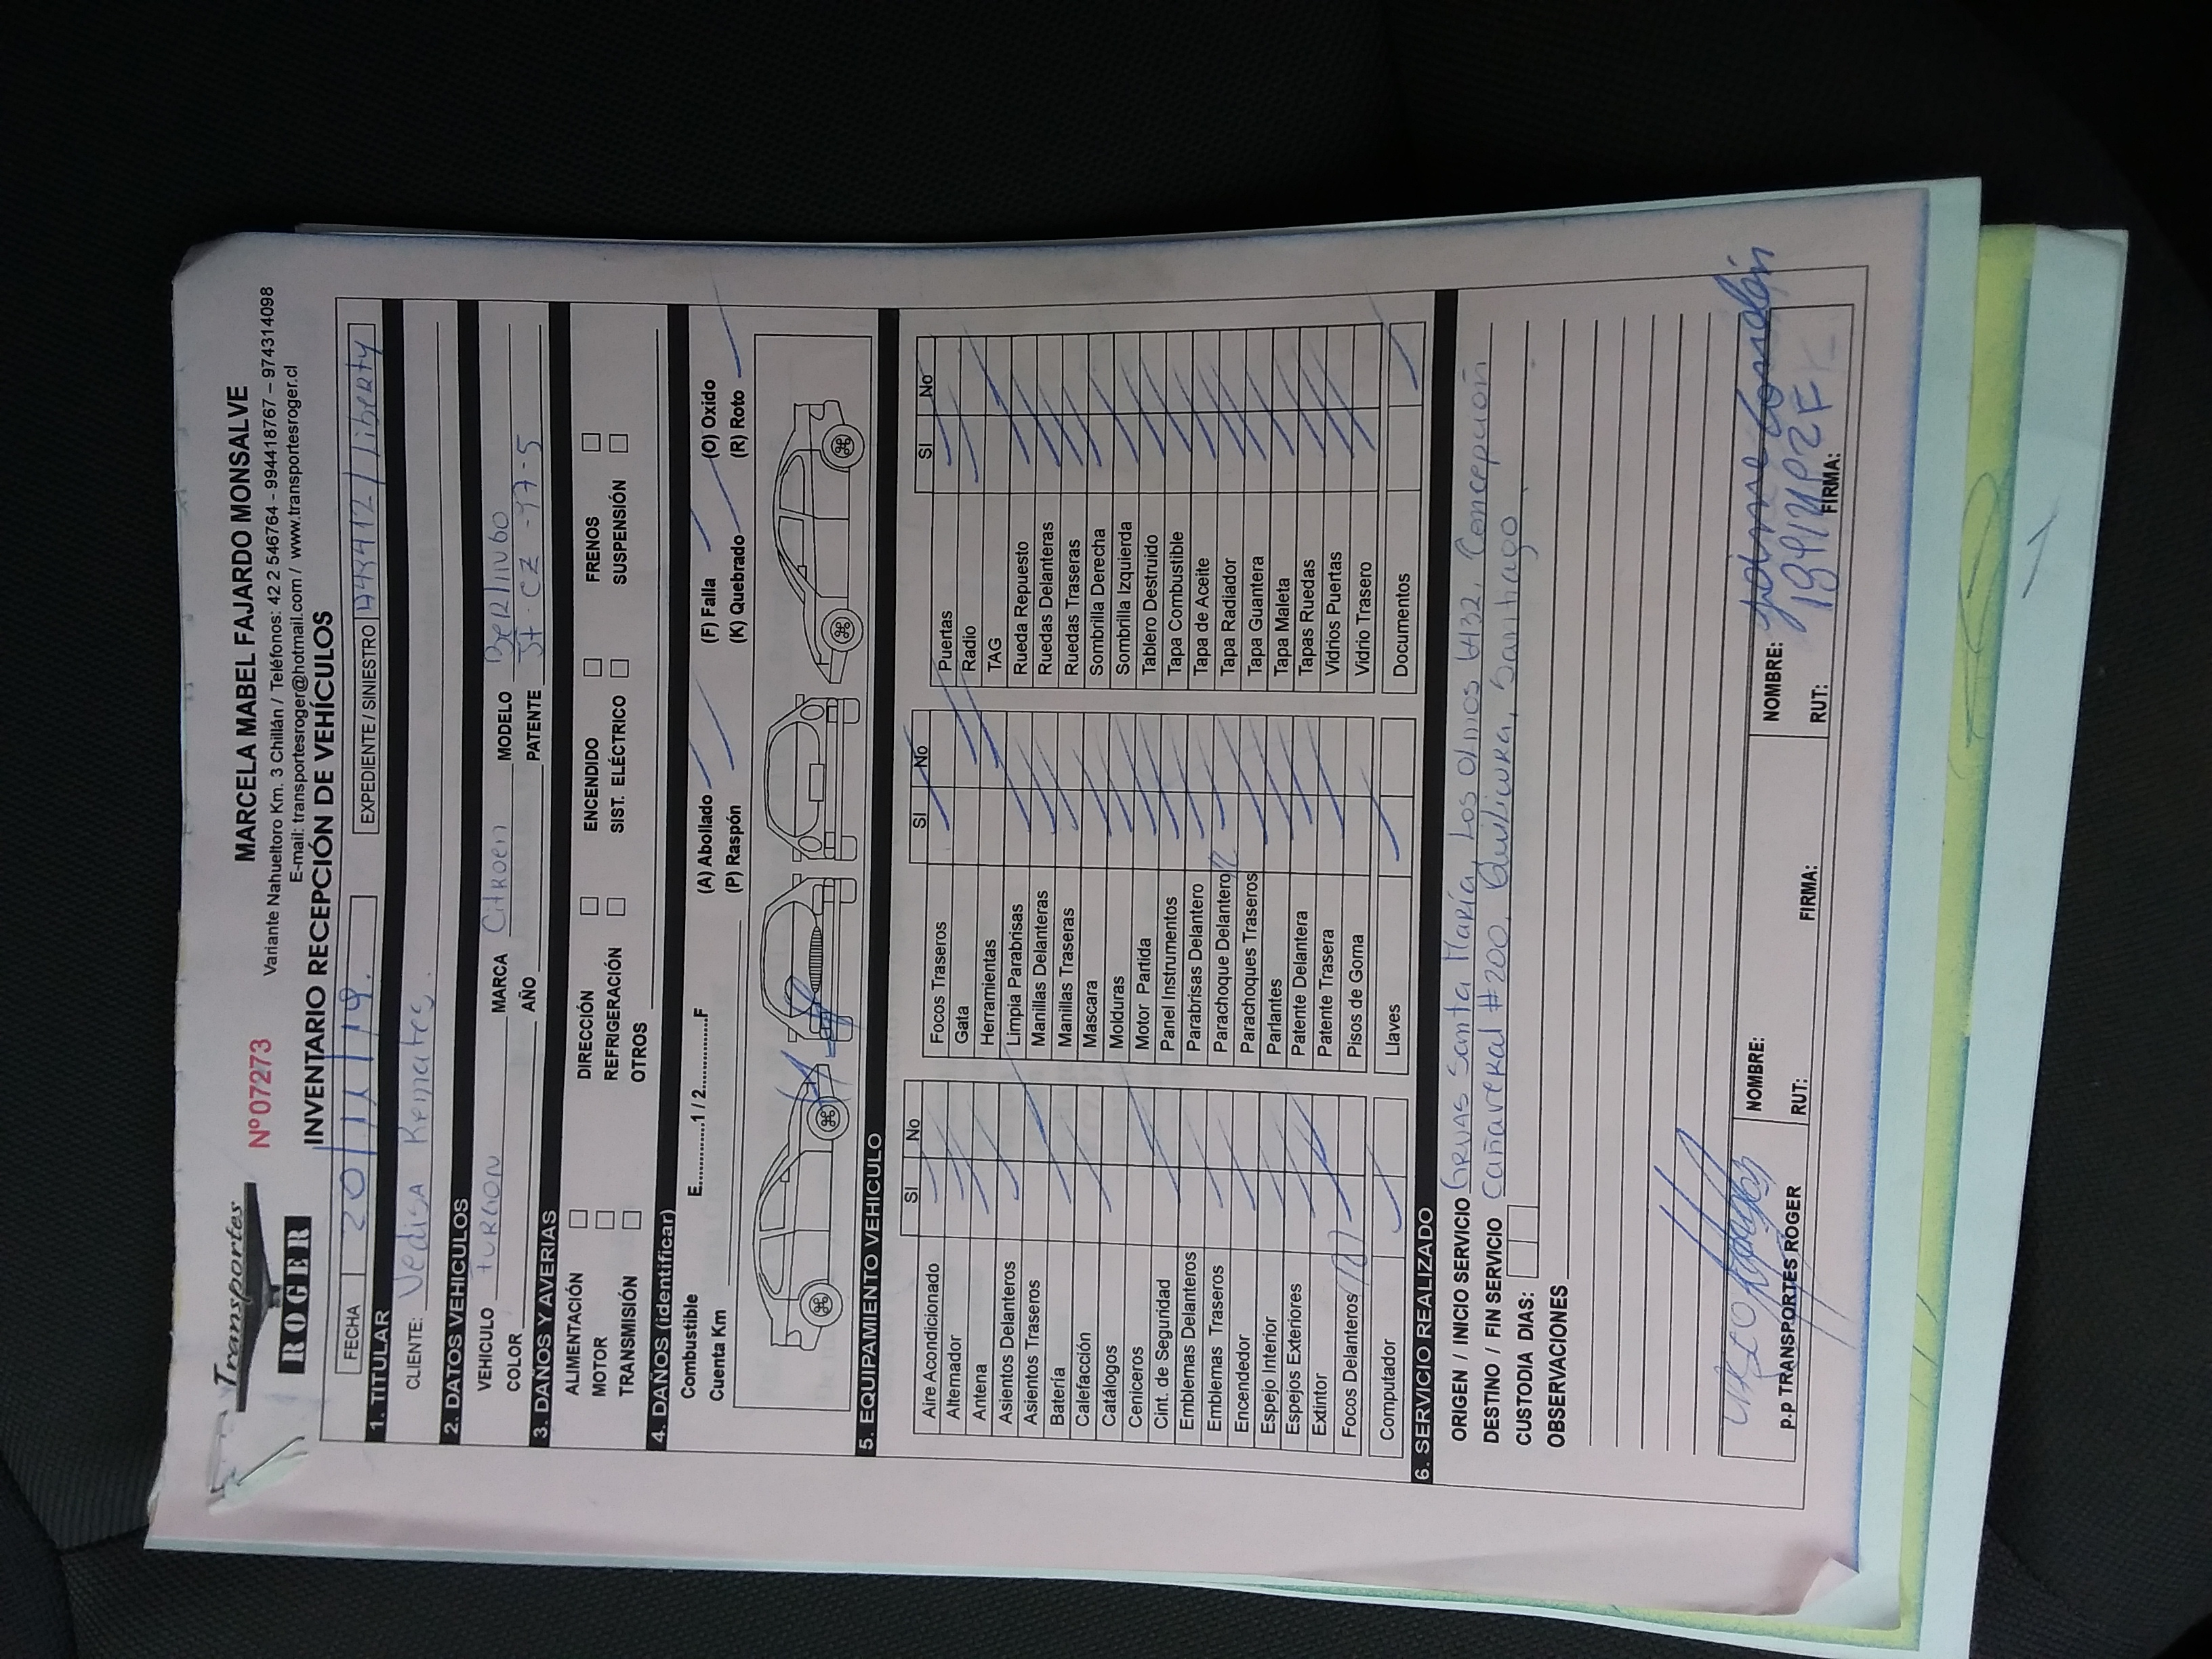 Transportes
ROGER
Nº07273
MARCELA MABEL FAJARDO MONSALVE
Variante Nahueltoro Km. 3 Chillán / Teléfonos: 42 2 546764 - 994418767 – 974314098
E-mail: transportesroger@hotmail.com / www.transportesroger.cl
INVENTARIO RECEPCIÓN DE VEHÍCULOS
FECHA 20/11/19. EXPEDIENTE / SINIESTRO / liberty
1. TITULAR
CLIENTE: Vedisa Remates.
2. DATOS VEHICULOS
VEHICULO FURGON MARCA Citroen MODELO
COLOR AÑO PATENTE CZ -97-5
3. DAÑOS Y AVERIAS
ALIMENTACIÓN DIRECCIÓN ENCENDIDO FRENOS
MOTOR REFRIGERACIÓN SIST. ELÉCTRICO SUSPENSIÓN
TRANSMISIÓN OTROS
4. DAÑOS (identificar)
Combustible E............1 / 2............F (A) Abollado (F) Falla (O) Oxido
Cuenta Km (P) Raspón (K) Quebrado (R) Roto
5. EQUIPAMIENTO VEHICULO
SI No SI No SI No
Aire Acondicionado Focos Traseros Puertas
Alternador Gata Radio
Antena Herramientas TAG
Asientos Delanteros Limpia Parabrisas Rueda Repuesto
Asientos Traseros Manillas Delanteras Ruedas Delanteras
Batería Manillas Traseras Ruedas Traseras
Calefacción Mascara Sombrilla Derecha
Catálogos Molduras Sombrilla Izquierda
Ceniceros Motor Partida Tablero Destruido
Cint. de Seguridad Panel Instrumentos Tapa Combustible
Emblemas Delanteros Parabrisas Delantero Tapa de Aceite
Emblemas Traseros Parachoque Delantero Tapa Radiador
Encendedor Parachoques Traseros Tapa Guantera
Espejo Interior Parlantes Tapa Maleta
Espejos Exteriores Patente Delantera Tapas Ruedas
Extintor Patente Trasera Vidrios Puertas
Focos Delanteros Pisos de Goma Vidrio Trasero
Computador Llaves Documentos
6. SERVICIO REALIZADO
ORIGEN / INICIO SERVICIO Gruas Santa María, Los Olmos 6432, Concepción
DESTINO / FIN SERVICIO Cañaveral #200, Quilicura, Santiago
CUSTODIA DIAS:
OBSERVACIONES
NOMBRE: NOMBRE:
p.p TRANSPORTES ROGER RUT: FIRMA: RUT: FIRMA: